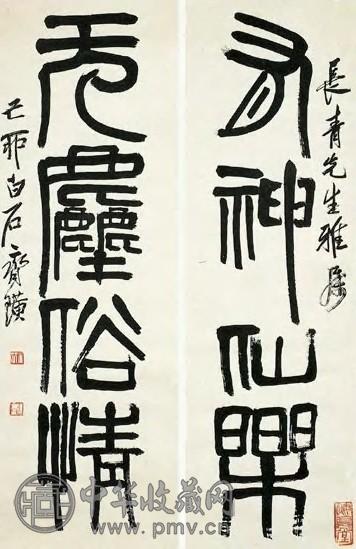 長青先生雅屬
有神仙樂
无塵俗情
己卯白石齊璜
中华收藏网
www.pmv.cn